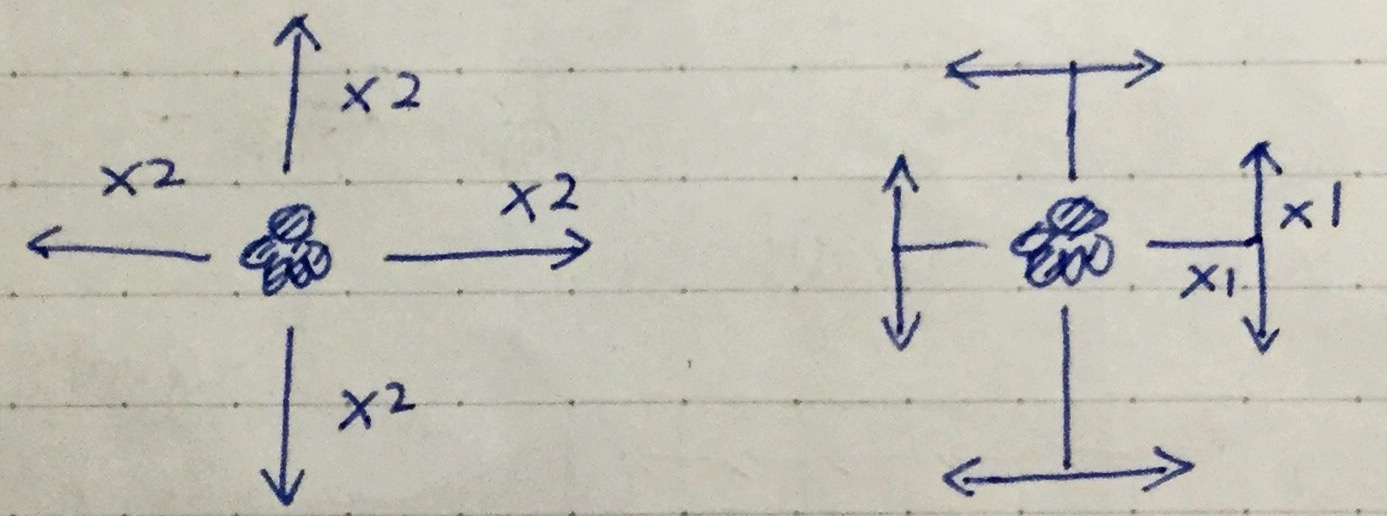 x2
x2
x2
x1
x1
x2